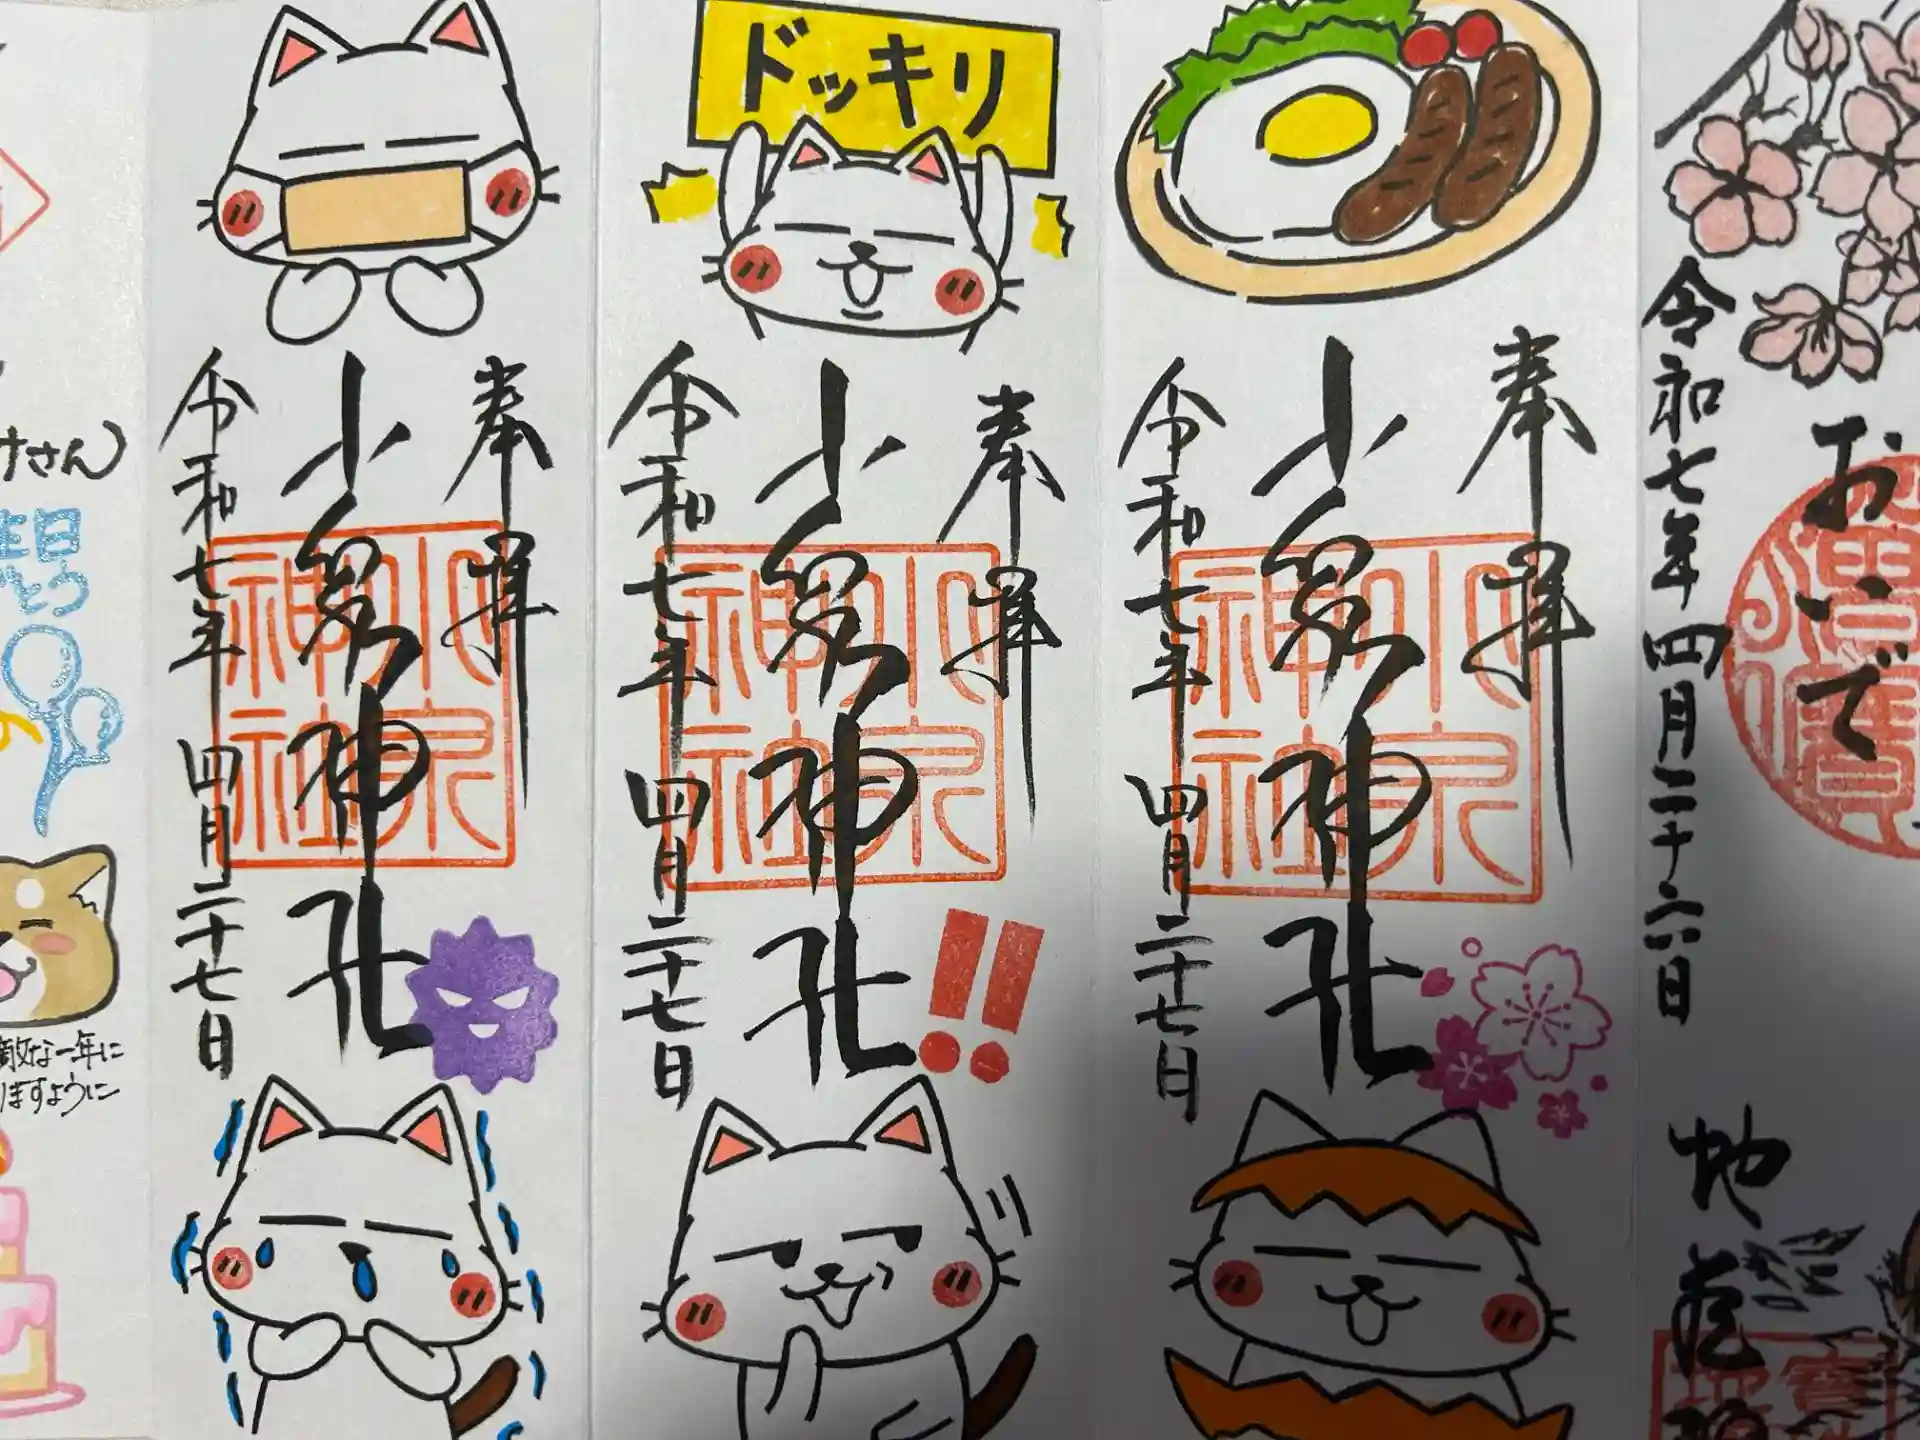 おいで
地蔵
令和七年四月二十六日
奉拝
小泉神社
小泉
神社
令和七年四月二十七日
ドッキリ
奉拝
小泉神社
小泉
神社
‼
令和七年四月二十七日
奉拝
小泉神社
小泉
神社
令和七年四月二十七日
けさん
敵な一年に
りますように